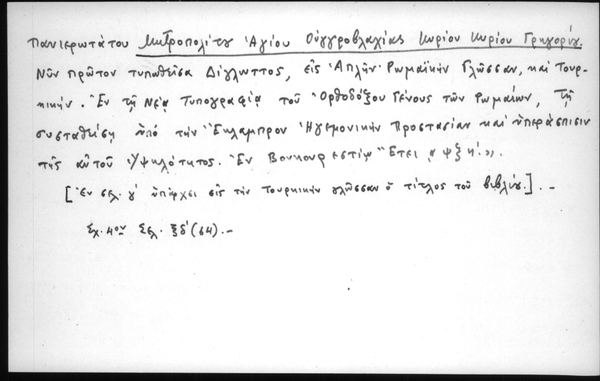 Πανιερωτάτου Μητροπολίτου Ἁγίου Οὑγγροβλαχίας Κυρίου Κυρίου Γρηγορίου.
Νῦν πρῶτον τυπωθεῖσα Δίγλωττος, εἰς Ἁπλῆν Ῥωμαϊκὴν Γλῶσσαν, καὶ Τουρ-
κικήν. Ἐν τῇ Νέᾳ Τυπογραφίᾳ τοῦ Ὀρθοδόξου Γένους τῶν Ῥωμαίων, Τῇ
συσταθείσῃ ὑπὸ τὴν Ἔκλαμπρον Ἡγεμονικὴν Προστασίαν καὶ ὑπεράσπισιν
τῆς αὐτοῦ Ὑψηλότητος. Ἐν Βουκουρεστίῳ Ἔτει ͵αψξη΄.».
[Ἐν σελ. γ΄ ὑπάρχει εἰς τὴν Τουρκικὴν γλῶσσαν ὁ τίτλος τοῦ βιβλίου.]. –
Σχ. 4ον Σελ. ξδ΄ (64). –